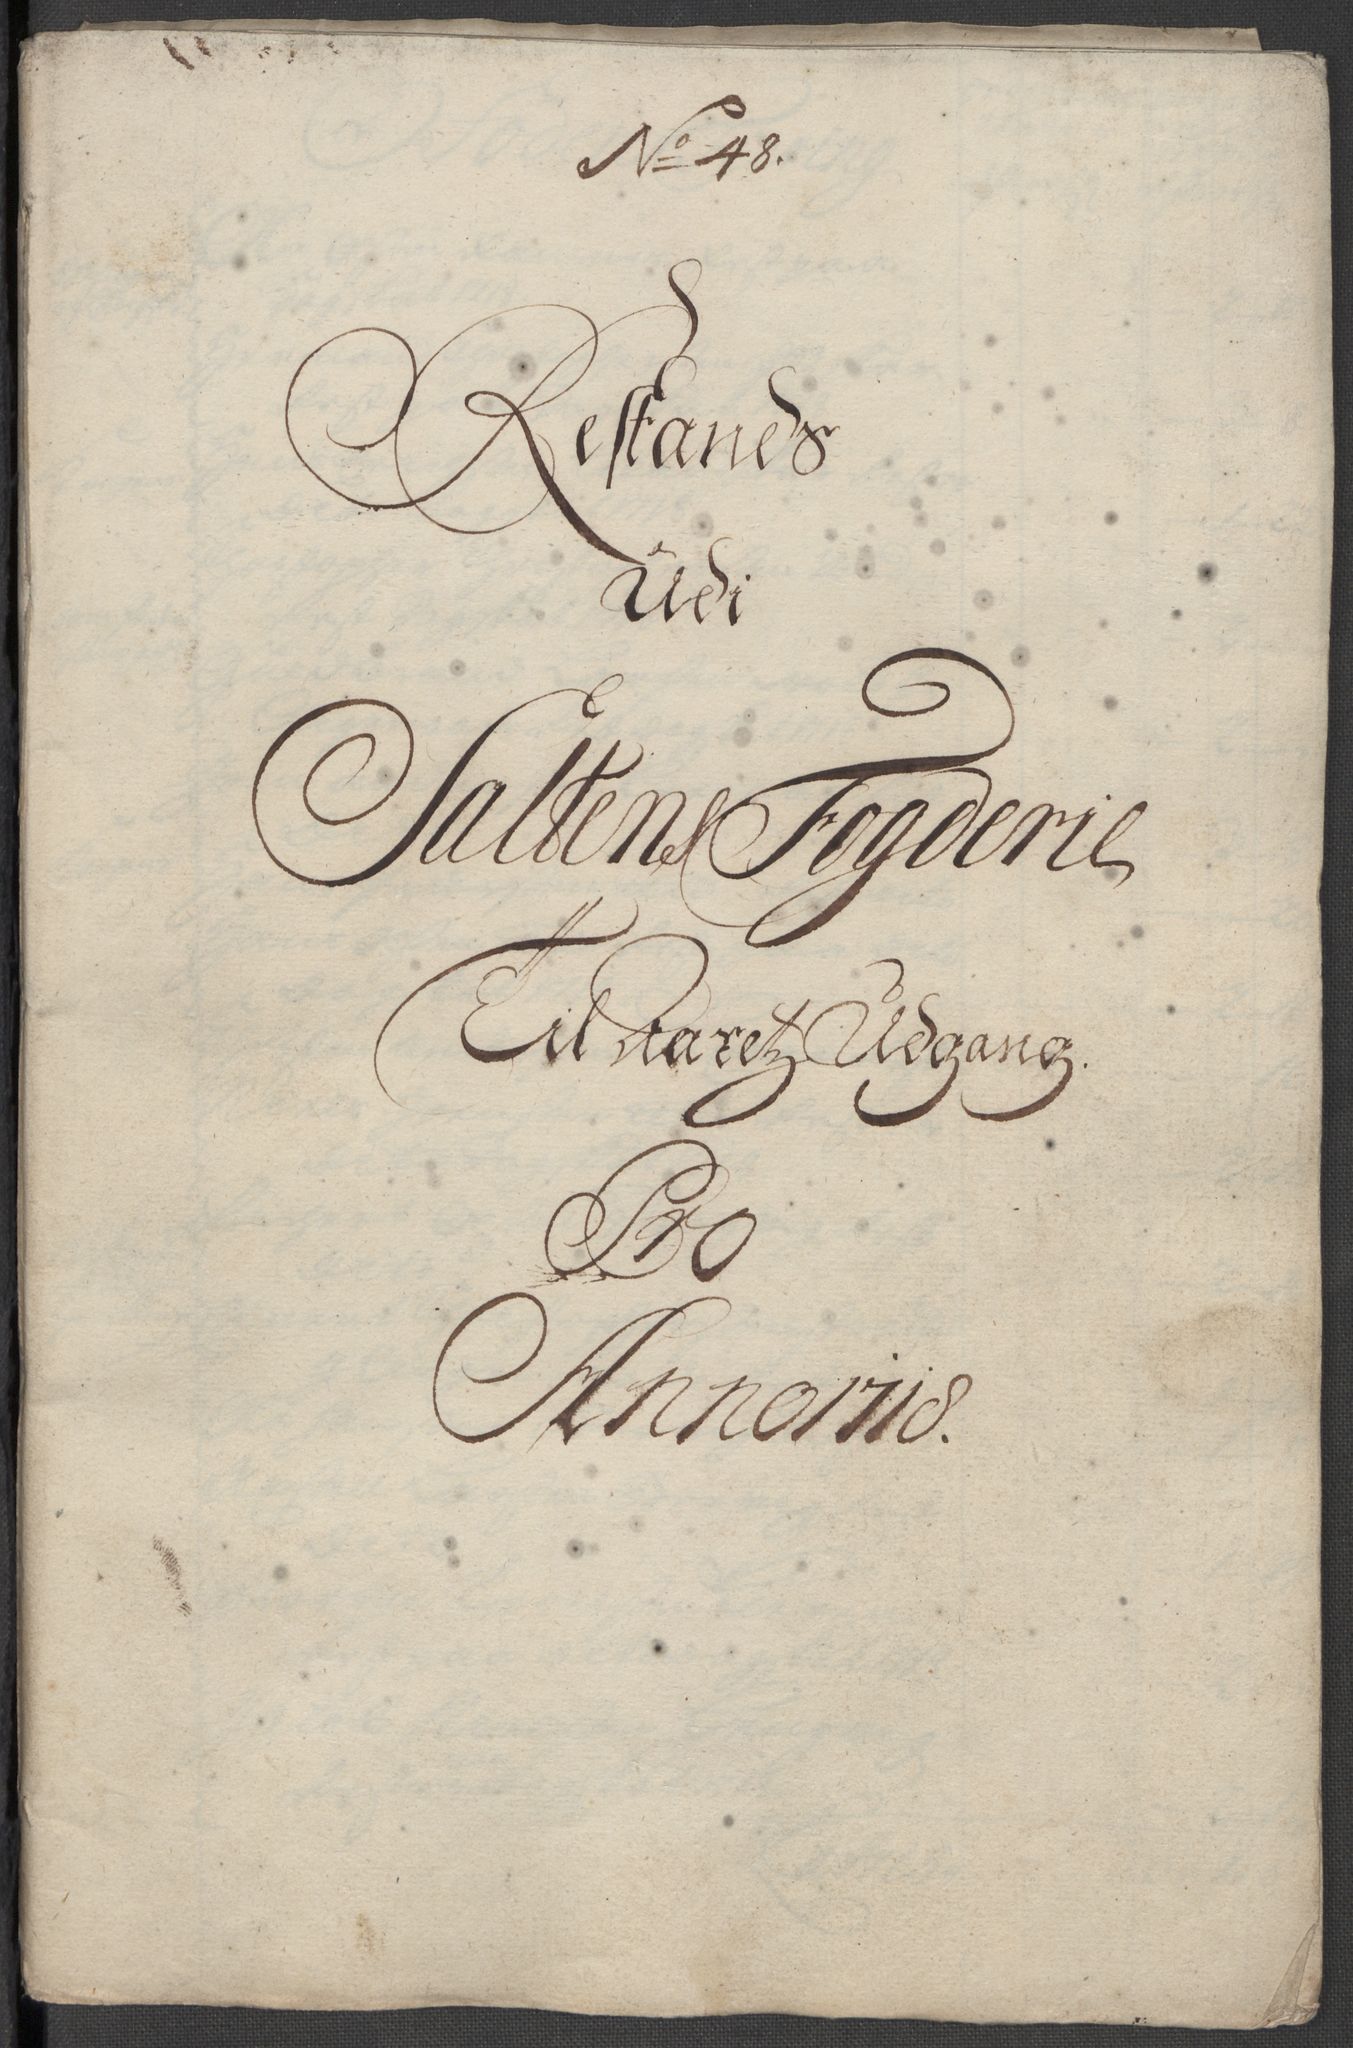 No 48.
Restands
Udi
Saltens Fogderie
Til Aaretz Udgang.
Pro
Anno 1718.